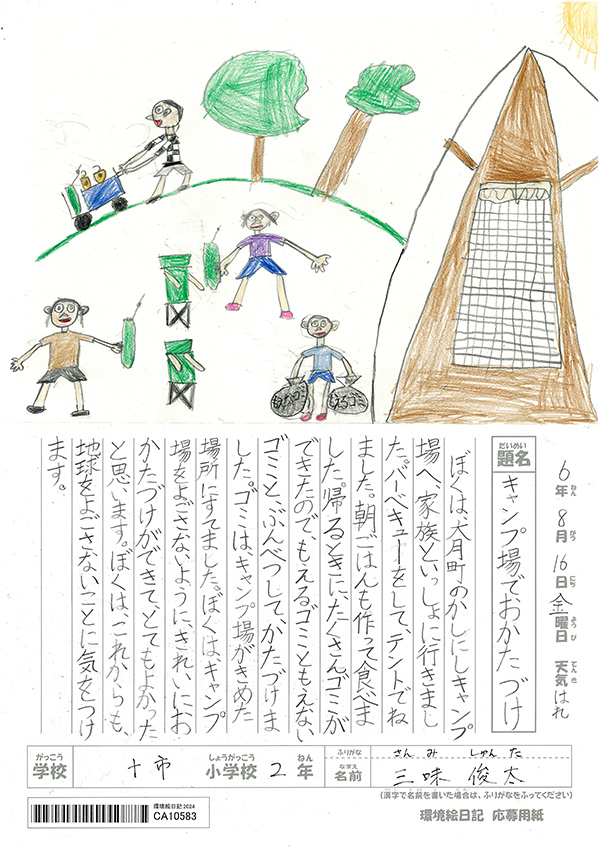 もえないゴミ
もえるゴミ
6年 8月 16日 金曜日 天気 はれ
題名
だいめい
キャンプ場で、おかたづけ
ぼくは、大月町のかしにしキャンプ
場へ、家族といっしょに行きまし
た。バーベキューをして、テントでね
ました。朝ごはんも作って食べま
した。帰るときに、たくさんゴミが
できたので、もえるゴミともえない
ゴミと、ぶんべつして、かたづけま
した。ゴミは、キャンプ場がきめた
場所にすてました。ぼくはキャンプ
場をよごさないように、きれいにお
かたづけができて、とてもよかった
と思います。ぼくは、これからも、
地球をよごさないことに気をつけ
ます。
がっこう
学校
十市
しょうがっこう
小学校
2
ねん
年
ふりがな
さんみ しゅんた
なまえ
名前
三味 俊太
(漢字で名前を書いた場合は、ふりがなをふってください)
環境絵日記 2024
CA10583
環境絵日記 応募用紙